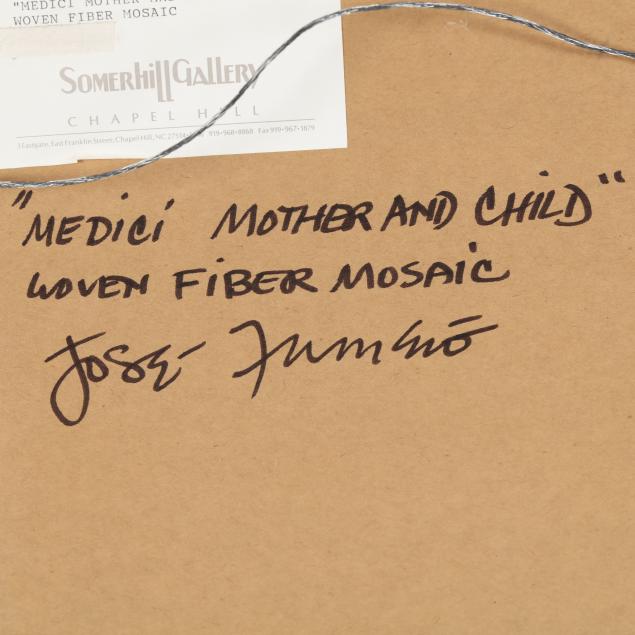 "MEDICI MOTHER AND
WOVEN FIBER MOSAIC
SOMERHILL GALLERY
CHAPEL HILL
3 Eastgate, East Franklin Street, Chapel Hill, NC 27514 919•968•8868 Fax 919•967•1879
"MEDICI MOTHER AND CHILD"
WOVEN FIBER MOSAIC
JOSÉ FUMERO